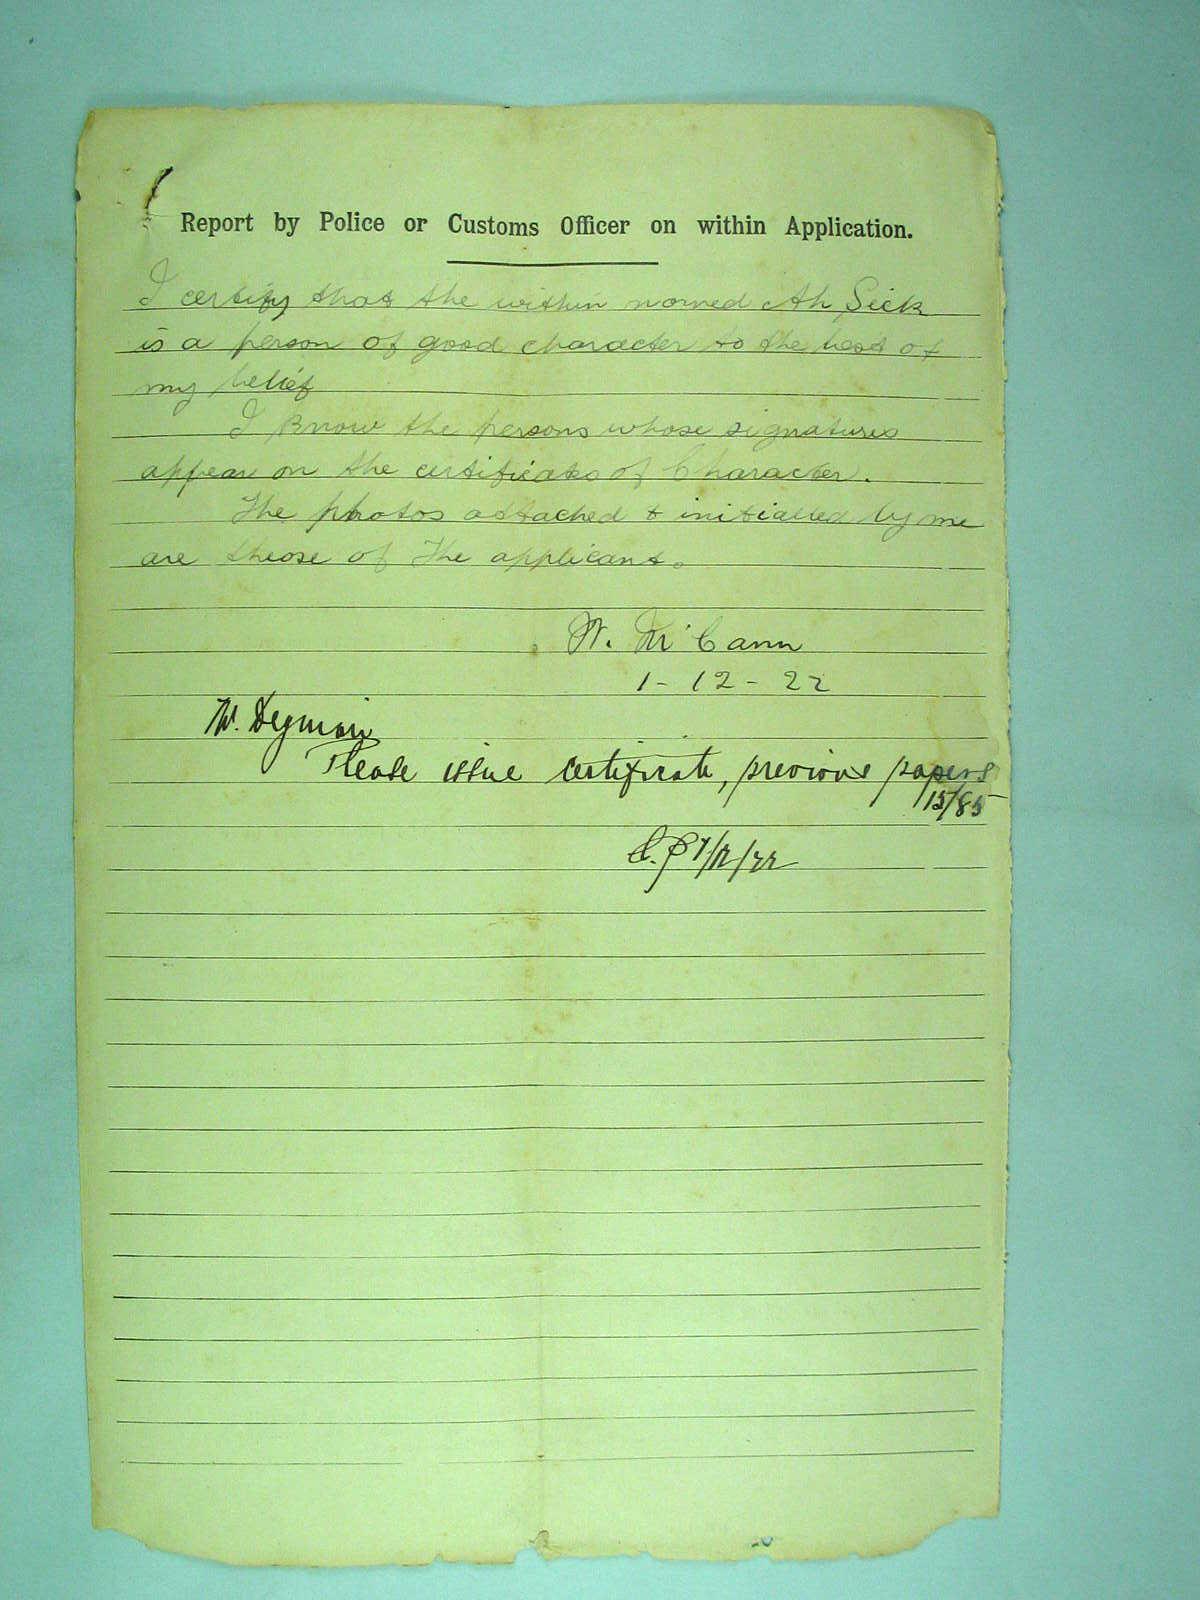 Report by Police or Customs Officer on within Application.
I certify that the within named Ah Sick
is a person of good character to the best of
my belief
I know the persons whose signatures
appear on the certificates of Character.
The photos attached & initialled by me
are those of the applicant.
W. McCann
1-12-22
Please issue certificate, previous papers
15/85